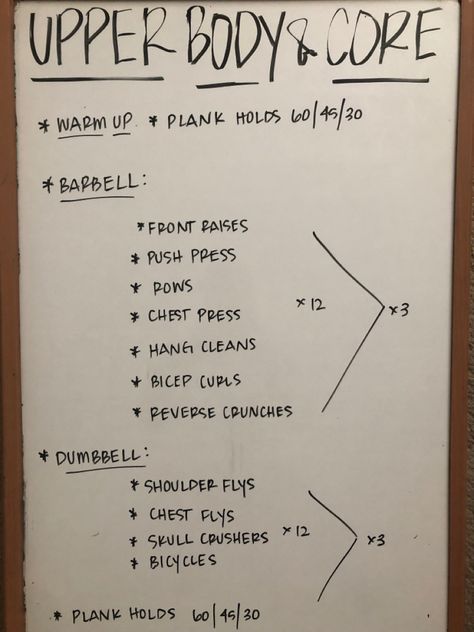 UPPER BODY & CORE
* WARM UP. * PLANK HOLDS 60/45/30
* BARBELL:
* FRONT RAISES
* PUSH PRESS
* ROWS
* CHEST PRESS
* HANG CLEANS
* BICEP CURLS
* REVERSE CRUNCHES
x 12
x3
* DUMBBELL:
* SHOULDER FLYS
* CHEST FLYS
* SKULL CRUSHERS
* BICYCLES
x 12
x3
* PLANK HOLDS 60/45/30